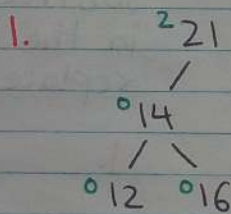 1. 2 21
0 14
0 12 0 16